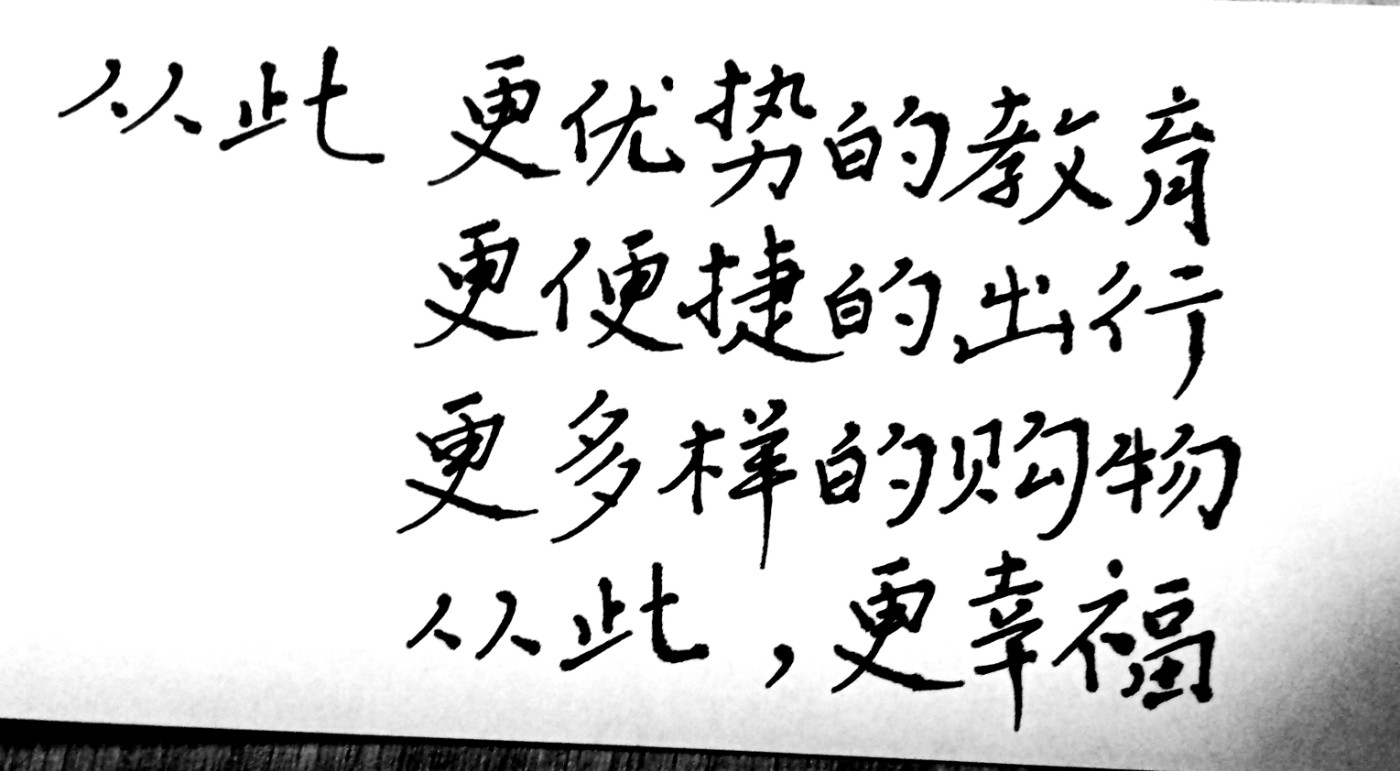 从此 更优势的教育
更便捷的出行
更多样的购物
从此，更幸福